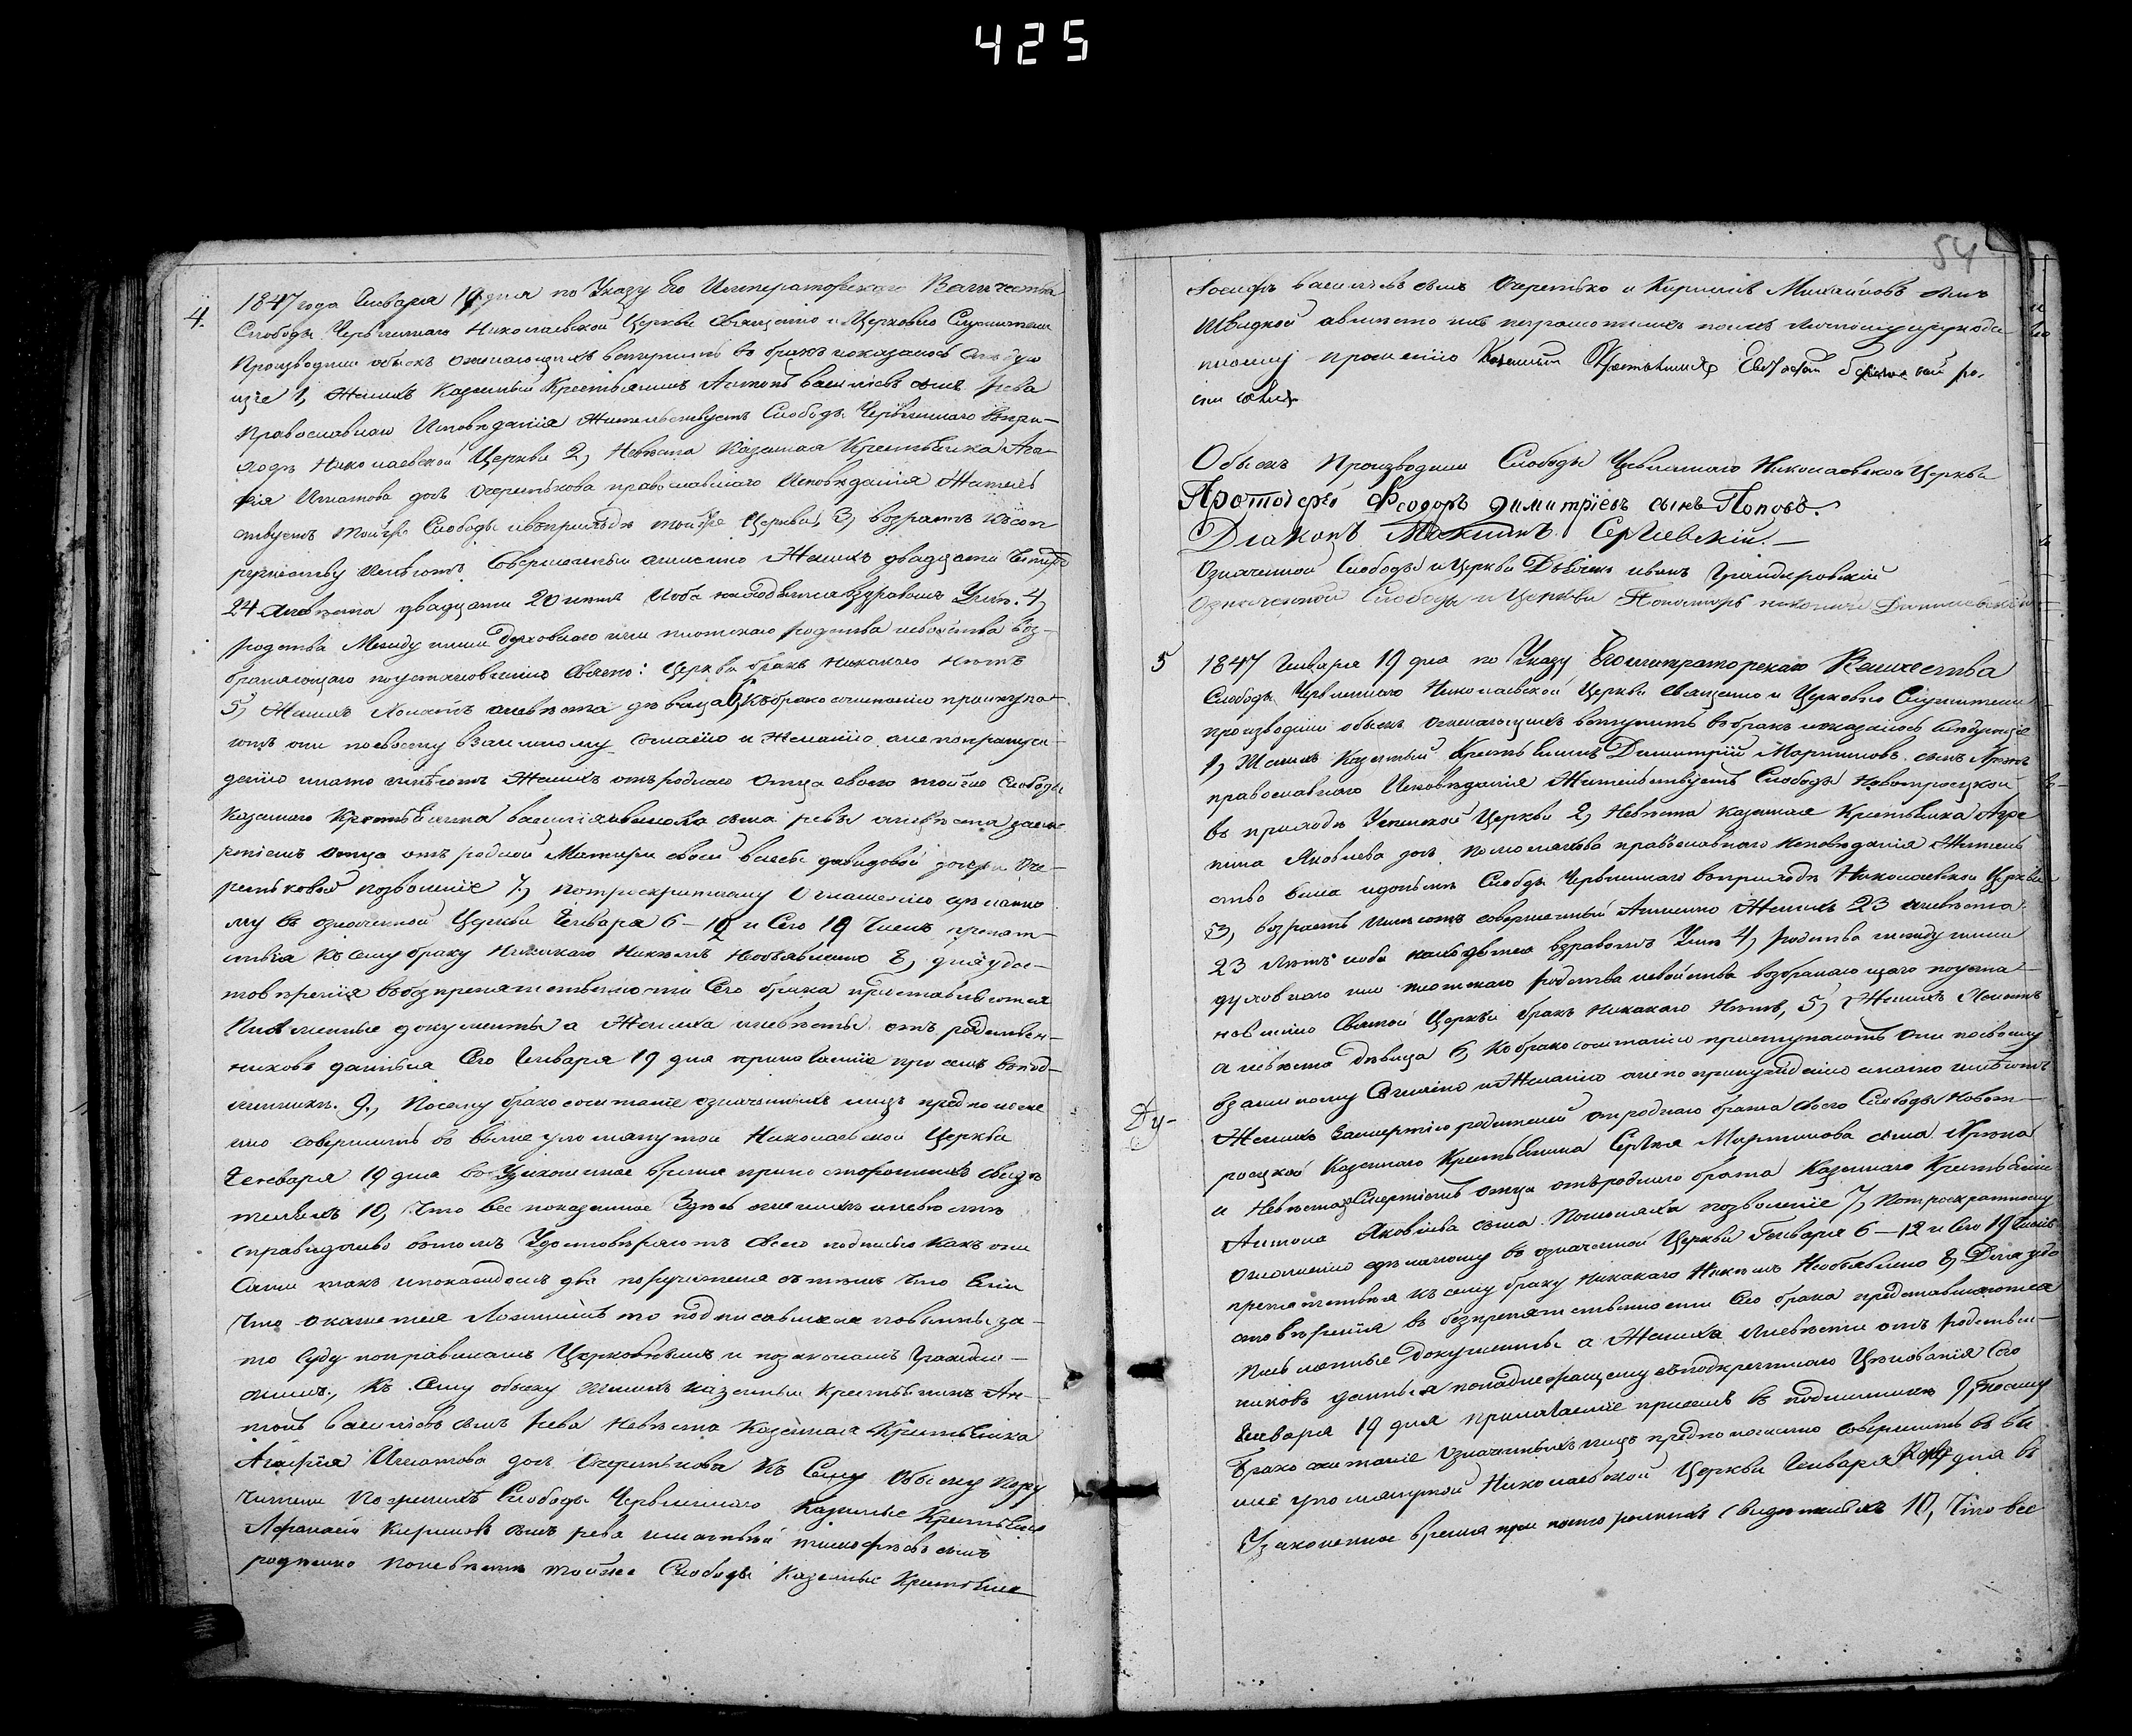 425
4.
1847 года Генваря 19 дня по Указу Его Императорского Величества
Слободы Червленнаго Николаевской Церкви Священно и Церковно Служители
Производили обыскъ о желающихъ вступить въ бракъ и оказалось следую
щее 1, Женихъ Казенный Крестьянинъ Антонъ Василіевъ сынъ Рева
Православнаго Исповеданія Жительствуетъ Слободы Червленнаго въ при-
ходѣ Николаевской Церкви 2, Невѣста Казенная Крестьянка Ага-
фія Игнатова дочь Очередькова православнаго Исповѣданія Житель
ствуетъ той же Слободы и въ приходѣ той же Церкви, 3, возрастъ къ соп
ружеству Имѣютъ Совершенный а именно Женихъ двадцати четырехъ
24 а невѣста двадцати 20 и оба находятся въ здравомъ Умѣ. 4,
родства Между ними духовнаго или плотскаго родства и свойства воз-
браняющаго по установленію Святой Церкви бракъ никакого нѣтъ
5, Женихъ Холостъ а невѣста дѣвица 6, къ бракосочетанію приступа-
ютъ они по своему взаимному согласію и Желанію а не по принуж-
денію на то имѣютъ Женихъ отъ роднаго Отца своего той же Слободы
Казеннаго Крестьянина Василія сына Ревы а невѣста за сме
ртіемъ Отца отъ родной Матери своей Давидовой дочери Оче-
редьковой позволеніе 7, По троекратному Оглашенію сделанно
му въ означенной Церкви Генваря 6 – 12 и Сего 19 Чиселъ препят-
ствія къ сему браку Никакого Никѣмъ Необъявлено 8, для удос-
товѣренія въ безпрепятственности Сего брака представляются
Письменные документы а Жениха и невѣсты отъ родствен-
никовъ данныя Сего Генваря 19 дня при семъ въ под-
линникѣ. 9, Посему бракосочетаніе означенныхъ лицъ предположе
но совершить въ выше упомянутой Николаевской Церкви
Генваря 19 дня въ Узаконенное время при постороннихъ свидѣ
теляхъ 10, Что все показанное Здѣсь о женихѣ и невѣстѣ
справедливо въ томъ Удостовѣряютъ своею подписью какъ они
Сами такъ и по каждомъ два поручителя съ тѣмъ что Если
Что окажется Ложнымъ то подписавшіеся повинны за-
то суду по правиламъ Церковнымъ и по законамъ Граждан-
скимъ, Къ Сему обыску женихъ казенный крестьянинъ Ан-
тонъ Василіевъ сынъ Рева Невѣста Казенная Крестьянка
Агафія Игнатова дочь Очередькова Къ Сему Обыску Пору
чители По женихѣ Слободы Червленнаго Казенные Крестьяне
Афанасій Кириловъ сынъ Рева и сынъ
по невѣстѣ той же Слободы Казенные Крестьяне
54
Іосифъ Василіевъ сынъ Очередько и Кирилъ Михайловъ сынъ
Швидкой а вместо ихъ неграмотныхъ по ихъ личному и рукода
нному прошенію Казенный Крестьянинъ ро-
списался
Обыскъ Производили Слободы Червленнаго Николаевской Церкви
Протоіерей Ѳеодоръ Димитріевъ сынъ Поповъ.
Діаконъ Максимъ Сергіевскій. –
Означенной Слободы и Церкви Дьячекъ Иванъ
Означенной Слободы и Церкви Пономарь Николай
5
1847 Генваря 19 дня по Указу Его Императорскаго Величества
Слободы Червленнаго Николаевской Церкви Священно и Церковно Служители
производили обыскъ о желающихъ вступить въ бракъ и оказалось следующее
1, Женихъ Казенный Крестьянинъ Димитрій Мартиновъ сынъ
православнаго Исповѣданія Жительствуетъ Слободы Новотроицкой
въ приходѣ Успенской Церкви 2, Невѣста казенная Крестьянка Агре
пина Яковлева дочь православнаго исповѣданія Житель
ство Слободы Червленнаго въ приходѣ Николаевской Церкви
3, возрастъ имѣютъ совершенный а именно Женихъ 23 а невѣста
23 лѣтъ и оба находятся въ здравомъ Умѣ 4, родства между ними
духовнаго или плотскаго родства и свойства возбраняющаго по уста-
новленію Святой Церкви бракъ никакого нѣтъ, 5, Женихъ Холостъ
а невѣста дѣвица 6, Къ бракосочетанію приступаютъ Они по своему
взаимному Согласію и Желанію а не по принужденію на то имѣютъ
Ду-
Женихъ За смертію родителей отъ роднаго брата своего Слободы Новот-
роицкой Казеннаго Крестьянина Сергѣя Мартинова сына
и Невѣста за Смертіемъ отца отъ роднаго брата Казеннаго Крестьянина
Антона Яковлева сына позволеніе 7, По троекратному
оглашенію сдѣланному въ означенной Церкви Генваря 6 – 12 и Сего 19 Чиселъ
препятствія къ сему браку никакого Никѣмъ Необъявлено 8, Для удо
стовѣренія въ безпрепятственности Сего брака представляются
Письменные Документы а Жениха и невѣсты отъ родствен-
никовъ данныя Сего
Генваря 19 дня при семъ въ подлинникѣ 9, Посему
Бракосочетаніе означенныхъ лицъ предположено совершить въ вы
ше упомянутой Николаевской Церкви Генваря дня въ
Узаконенное время при постороннихъ Свидѣтеляхъ 10, Что все